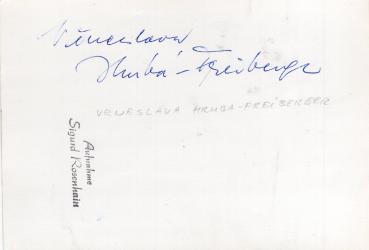 Věnceslava
Hrubá-Freiberger
VENESLAVA HRUBA-FREIBERGER
Aufnahme
Sigurd Rosenhain